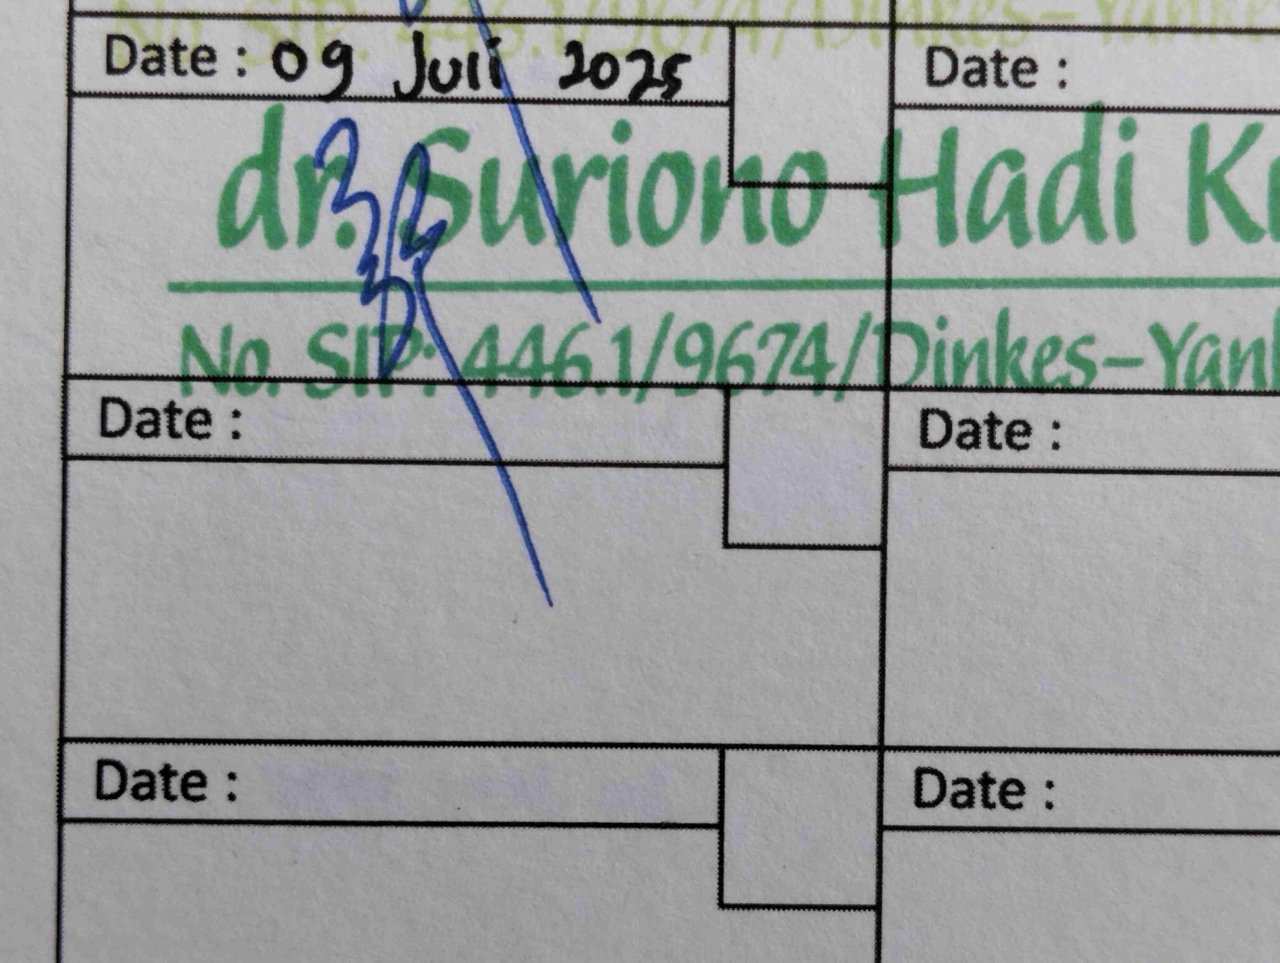 No. SIP: 446.1/9674/Dinkes-Yanke
Date : 09 Juli 2025
Date :
dr. Suriono Hadi K
No. SIP: 446.1/9674/Dinkes-Yank
Date :
Date :
Date :
Date :